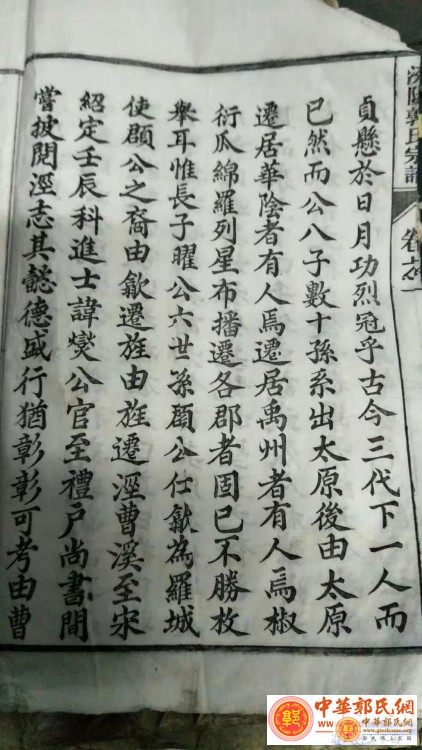 汾陽郭氏宗譜
卷之
貞懸於日月功烈冠乎古今三代下一人而
已然而公八子數十孫系出太原後由太原
遷居華陰者有人焉遷居禹州者有人焉椒
衍瓜綿羅列星布播遷各郡者固已不勝枚
舉耳惟長子曜公六世孫頵公仕歙為羅城
使頵公之裔由歙遷旌由旌遷涇曹溪至宋
紹定壬辰科進士諱爕公官至禮戶尚書間
嘗披閱涇志其懿德盛行猶彰彰可考由曹
中華郭氏網
www.guoshong.com